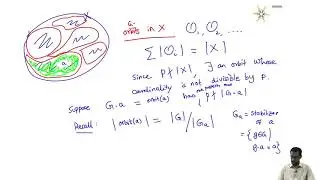 G-
orbits in X
O₁, O₂, ....
∑ |Oᵢ| = |X|
Since p ∤ |X|, ∃ an orbit whose
cardinality is not divisible by p.
Suppose G·a = orbit(a) has
p ∤ |G·a|
Recall: |orbit(a)| = |G|/|Gₐ|
Gₐ = stabilizer
of a
= {g∈G |
g·a = a}